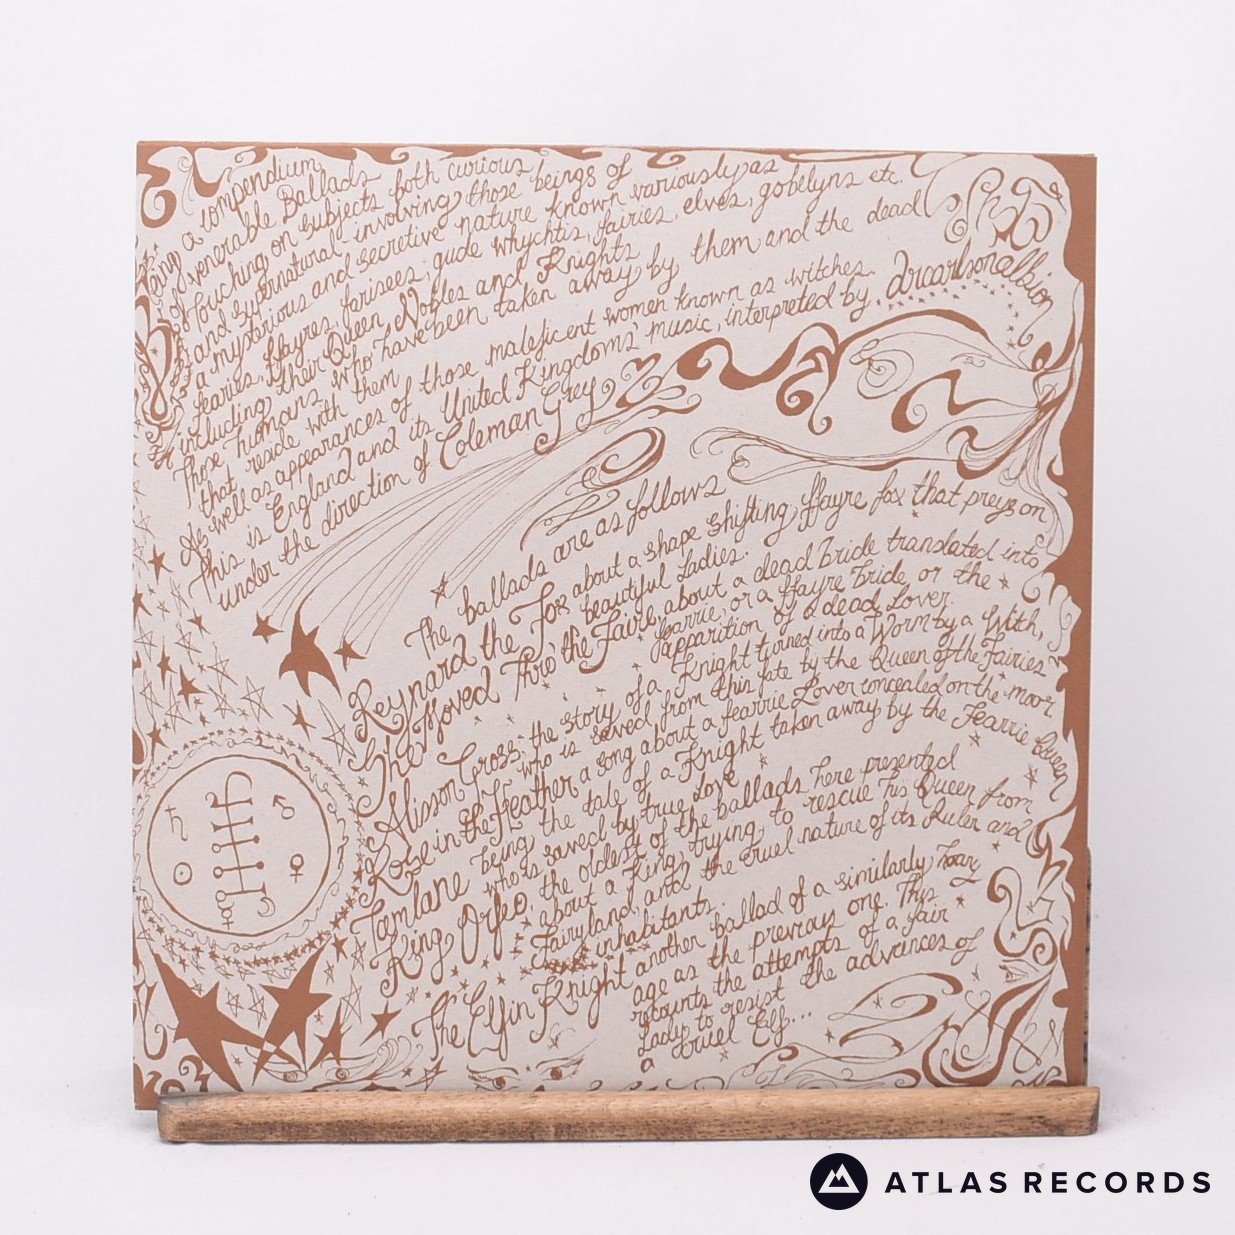 Being a compendium
of venerable Ballads
touching on subjects both curious
and supernatural - involving those beings of
a mysterious and secretive nature known variously as
fearies, ffayres, farisees, gude whychtis, fairies, elves, gobelyns etc.
including their Queen, Nobles and Knights
Those humans who have been taken away by them and the dead
that reside with them
As well as appearances of those maleficent women known as witches.
This is England and its United Kingdoms' music, interpreted by
under the direction of Coleman Grey
The ballads are as follows
Reynard the Fox about a shape shifting ffayre fox that preys on
beautiful Ladies.
She Moved Thro' the Faire about a dead bride translated into
faerrie, or a ffayre bride, or the
apparition of a dead Lover.
Alisson Gross: the story of a Knight turned into a Worm by a Witch,
who is saved from this fate by the Queen of the Fairies
Rose in the Heather a song about a fearrie Lover concealed on the moor.
Tamlane being the tale of a Knight taken away by the Fearrie Queen
who is saved by true Love
King Orfeo, the oldest of the ballads here presented
about a King, trying to rescue his Queen from
Fairyland, and the cruel nature of its Ruler and
inhabitants.
The Elfin Knight another ballad of a similarly hoary
age as the previous one. This
recounts the attempts of a fair
Lady to resist the advances of
a cruel Elf...
ATLAS RECORDS